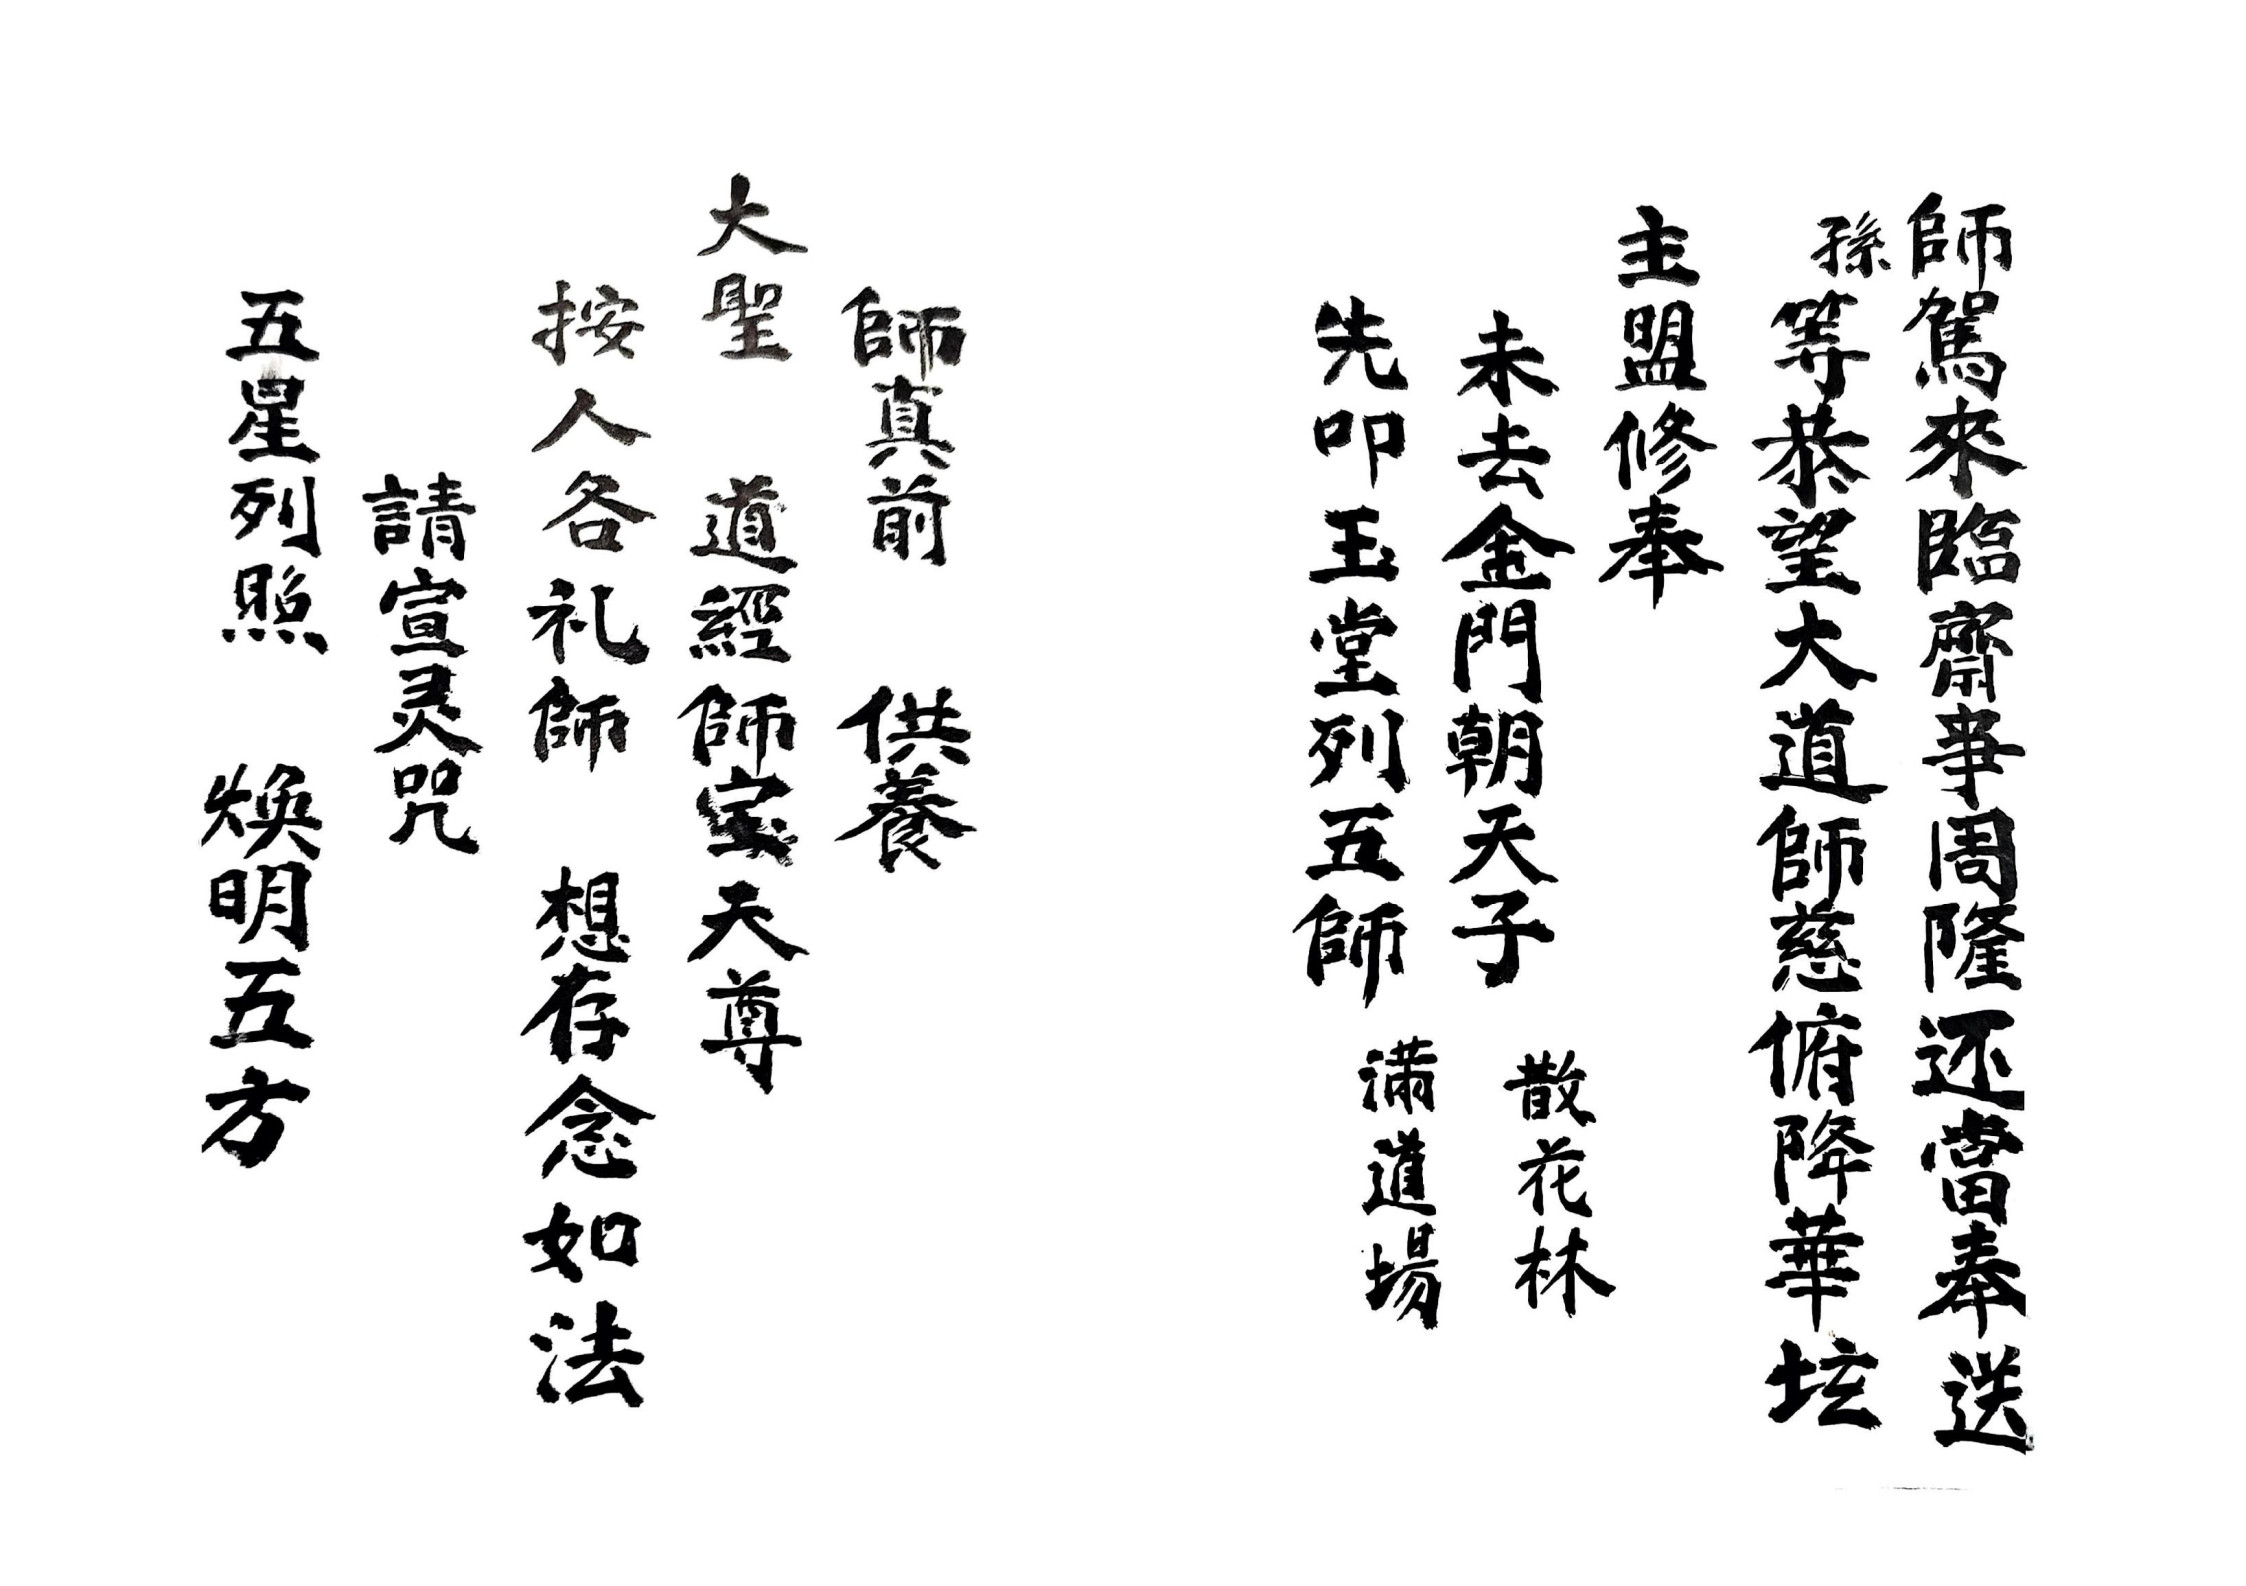 師駕來臨齋事周隆还當奉送
孫等恭望大道師慈俯降華坛
主盟修奉
未去金門朝天子 散花林
先叩玉堂列五師 滿道場
師真前 供養
大聖 道經師宝天尊
按人各礼師 想存念如法
請宣灵咒
五星列照 焕明五方